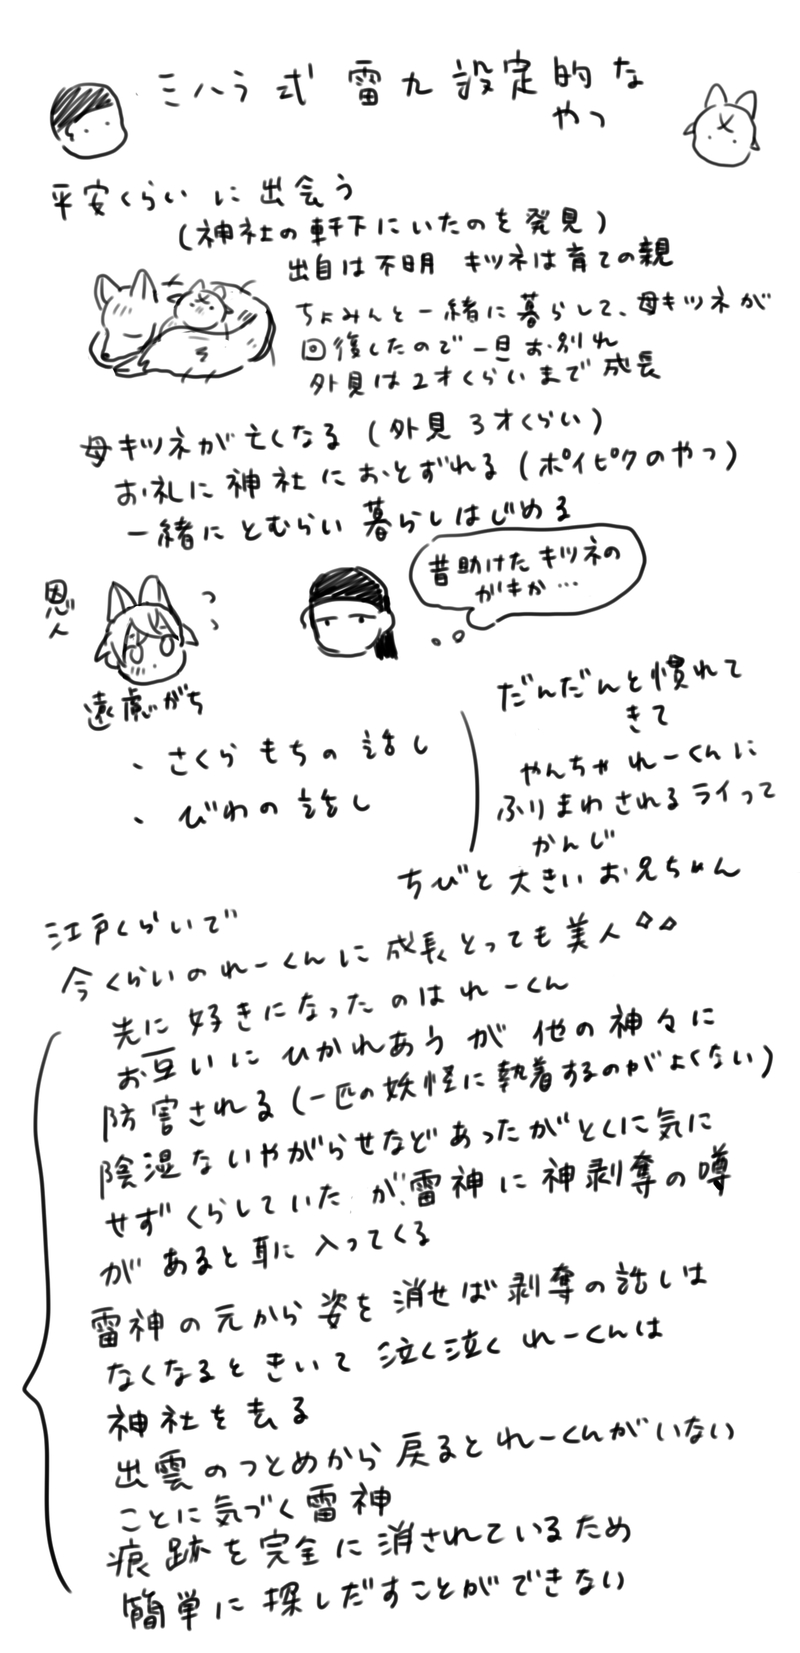 ミハラ式 雷九 設定的な
やつ
平安くらいに出会う
(神社の軒下にいたのを発見)
出自は不明 キツネは育ての親
ちょみんと一緒に暮らして、母キツネが
回復したので一旦お別れ
外見は2才くらいまで成長
母キツネが亡くなる(外見3才くらい)
お礼に神社におとずれる(ポイピクのやつ)
一緒にとむらい暮らしはじめる
昔助けたキツネの
ガキか…
恩人
遠慮がち
・さくらもちの話し
・びわの話し
だんだんと慣れて
きて
やんちゃれーくんに
ふりまわされるライって
かんじ
ちびと大きいお兄ちゃん
江戸くらいで
今くらいのれーくんに成長とっても美人
先に好きになったのはれーくん
お互いにひかれあうが他の神々に
防害される(一匹の妖怪に執着するのがよくない)
陰湿ないやがらせなどあったがとくに気に
せずくらしていたが、雷神に神剥奪の噂
があると耳に入ってくる
雷神の元から姿を消せば剥奪の話しは
なくなるときいて泣く泣くれーくんは
神社を去る
出雲のつとめから戻るとれーくんがいない
ことに気づく雷神
痕跡を完全に消されているため
簡単に探しだすことができない